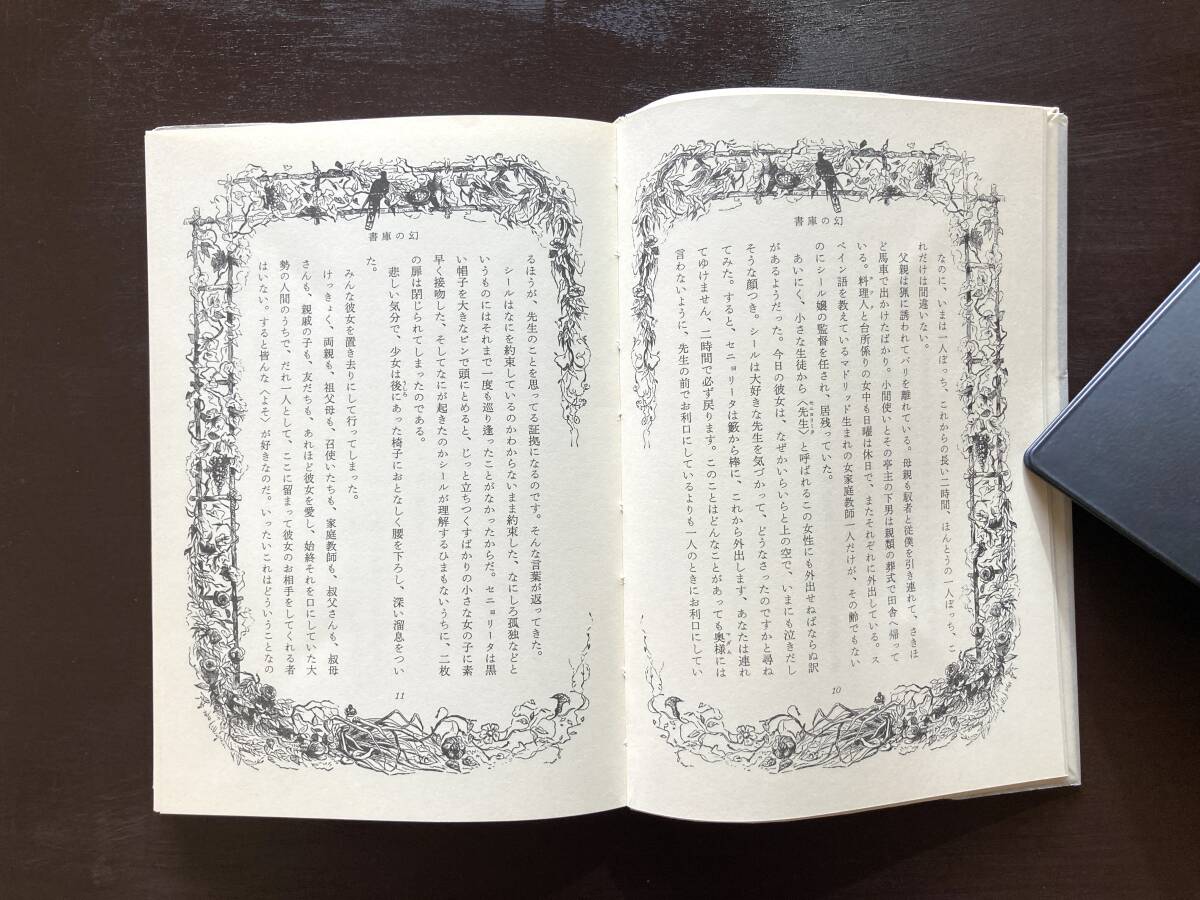 書庫の幻
なのに、いまは一人ぼっち、これからの長い二時間、ほんとうの一人ぼっち、こ
れだけは間違いない。
父親は猟に誘われてパリを離れている。母親も馭者と従僕を引き連れて、さきほ
ど馬車で出かけたばかり。小間使いとその亭主の下男は親類の葬式で田舎へ帰って
いる。料理人と台所係りの女中も日曜は休日で、またそれぞれに外出している。ス
ペイン語を教えているマドリッド生まれの女家庭教師一人だけが、その齢でもない
のにシール嬢の監督を任され、居残っていた。
あいにく、小さな生徒から〈先生〉と呼ばれるこの女性にも外出せねばならぬ訳
があるようだった。今日の彼女は、なぜかいらいらと上の空で、いまにも泣きだし
そうな顔つき。シールは大好きな先生を気づかって、どうなさったのですかと尋ね
てみた。すると、セニョリータは藪から棒に、これから外出します、あなたは連れ
てゆけません、二時間で必ず戻ります。このことはどんなことがあっても奥様には
言わないように、先生の前でお利口にしているよりも一人のときにお利口にしてい
10
書庫の幻
るほうが、先生のことを思ってる証拠になるのです。そんな言葉が返ってきた。
シールはなにを約束しているのかわからないまま約束した、なにしろ孤独などと
いうものにはそれまで一度も巡り逢ったことがなかったからだ。セニョリータは黒
い帽子を大きなピンで頭にとめると、じっと立ちつくすばかりの小さな女の子に素
早く接吻した、そしてなにが起きたのかシールが理解するひまもないうちに、二枚
の扉は閉じられてしまったのである。
悲しい気分で、少女は後にあった椅子におとなしく腰を下ろし、深い溜息をつい
た。
みんな彼女を置き去りにして行ってしまった。
けっきょく、両親も、祖父母も、召使いたちも、家庭教師も、叔父さんも、叔母
さんも、親戚の子も、友だちも、あれほど彼女を愛し、始終それを口にしていた大
勢の人間のうちで、だれ一人として、ここに留まって彼女のお相手をしてくれる者
はいない。すると皆んな〈よそ〉が好きなのだ。いったいこれはどういうことなの
11